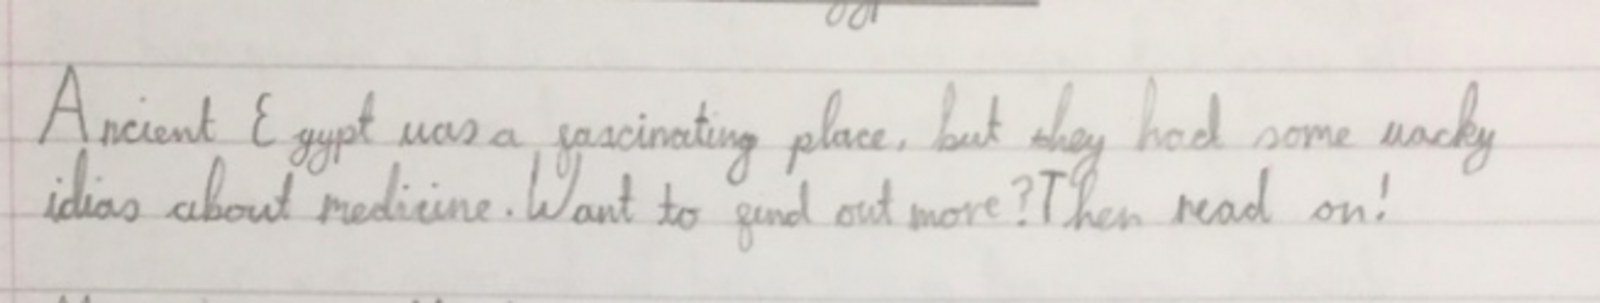 Ancient Egypt was a fascinating place, but they had some wacky
idias about medicine. Want to find out more? Then read on!